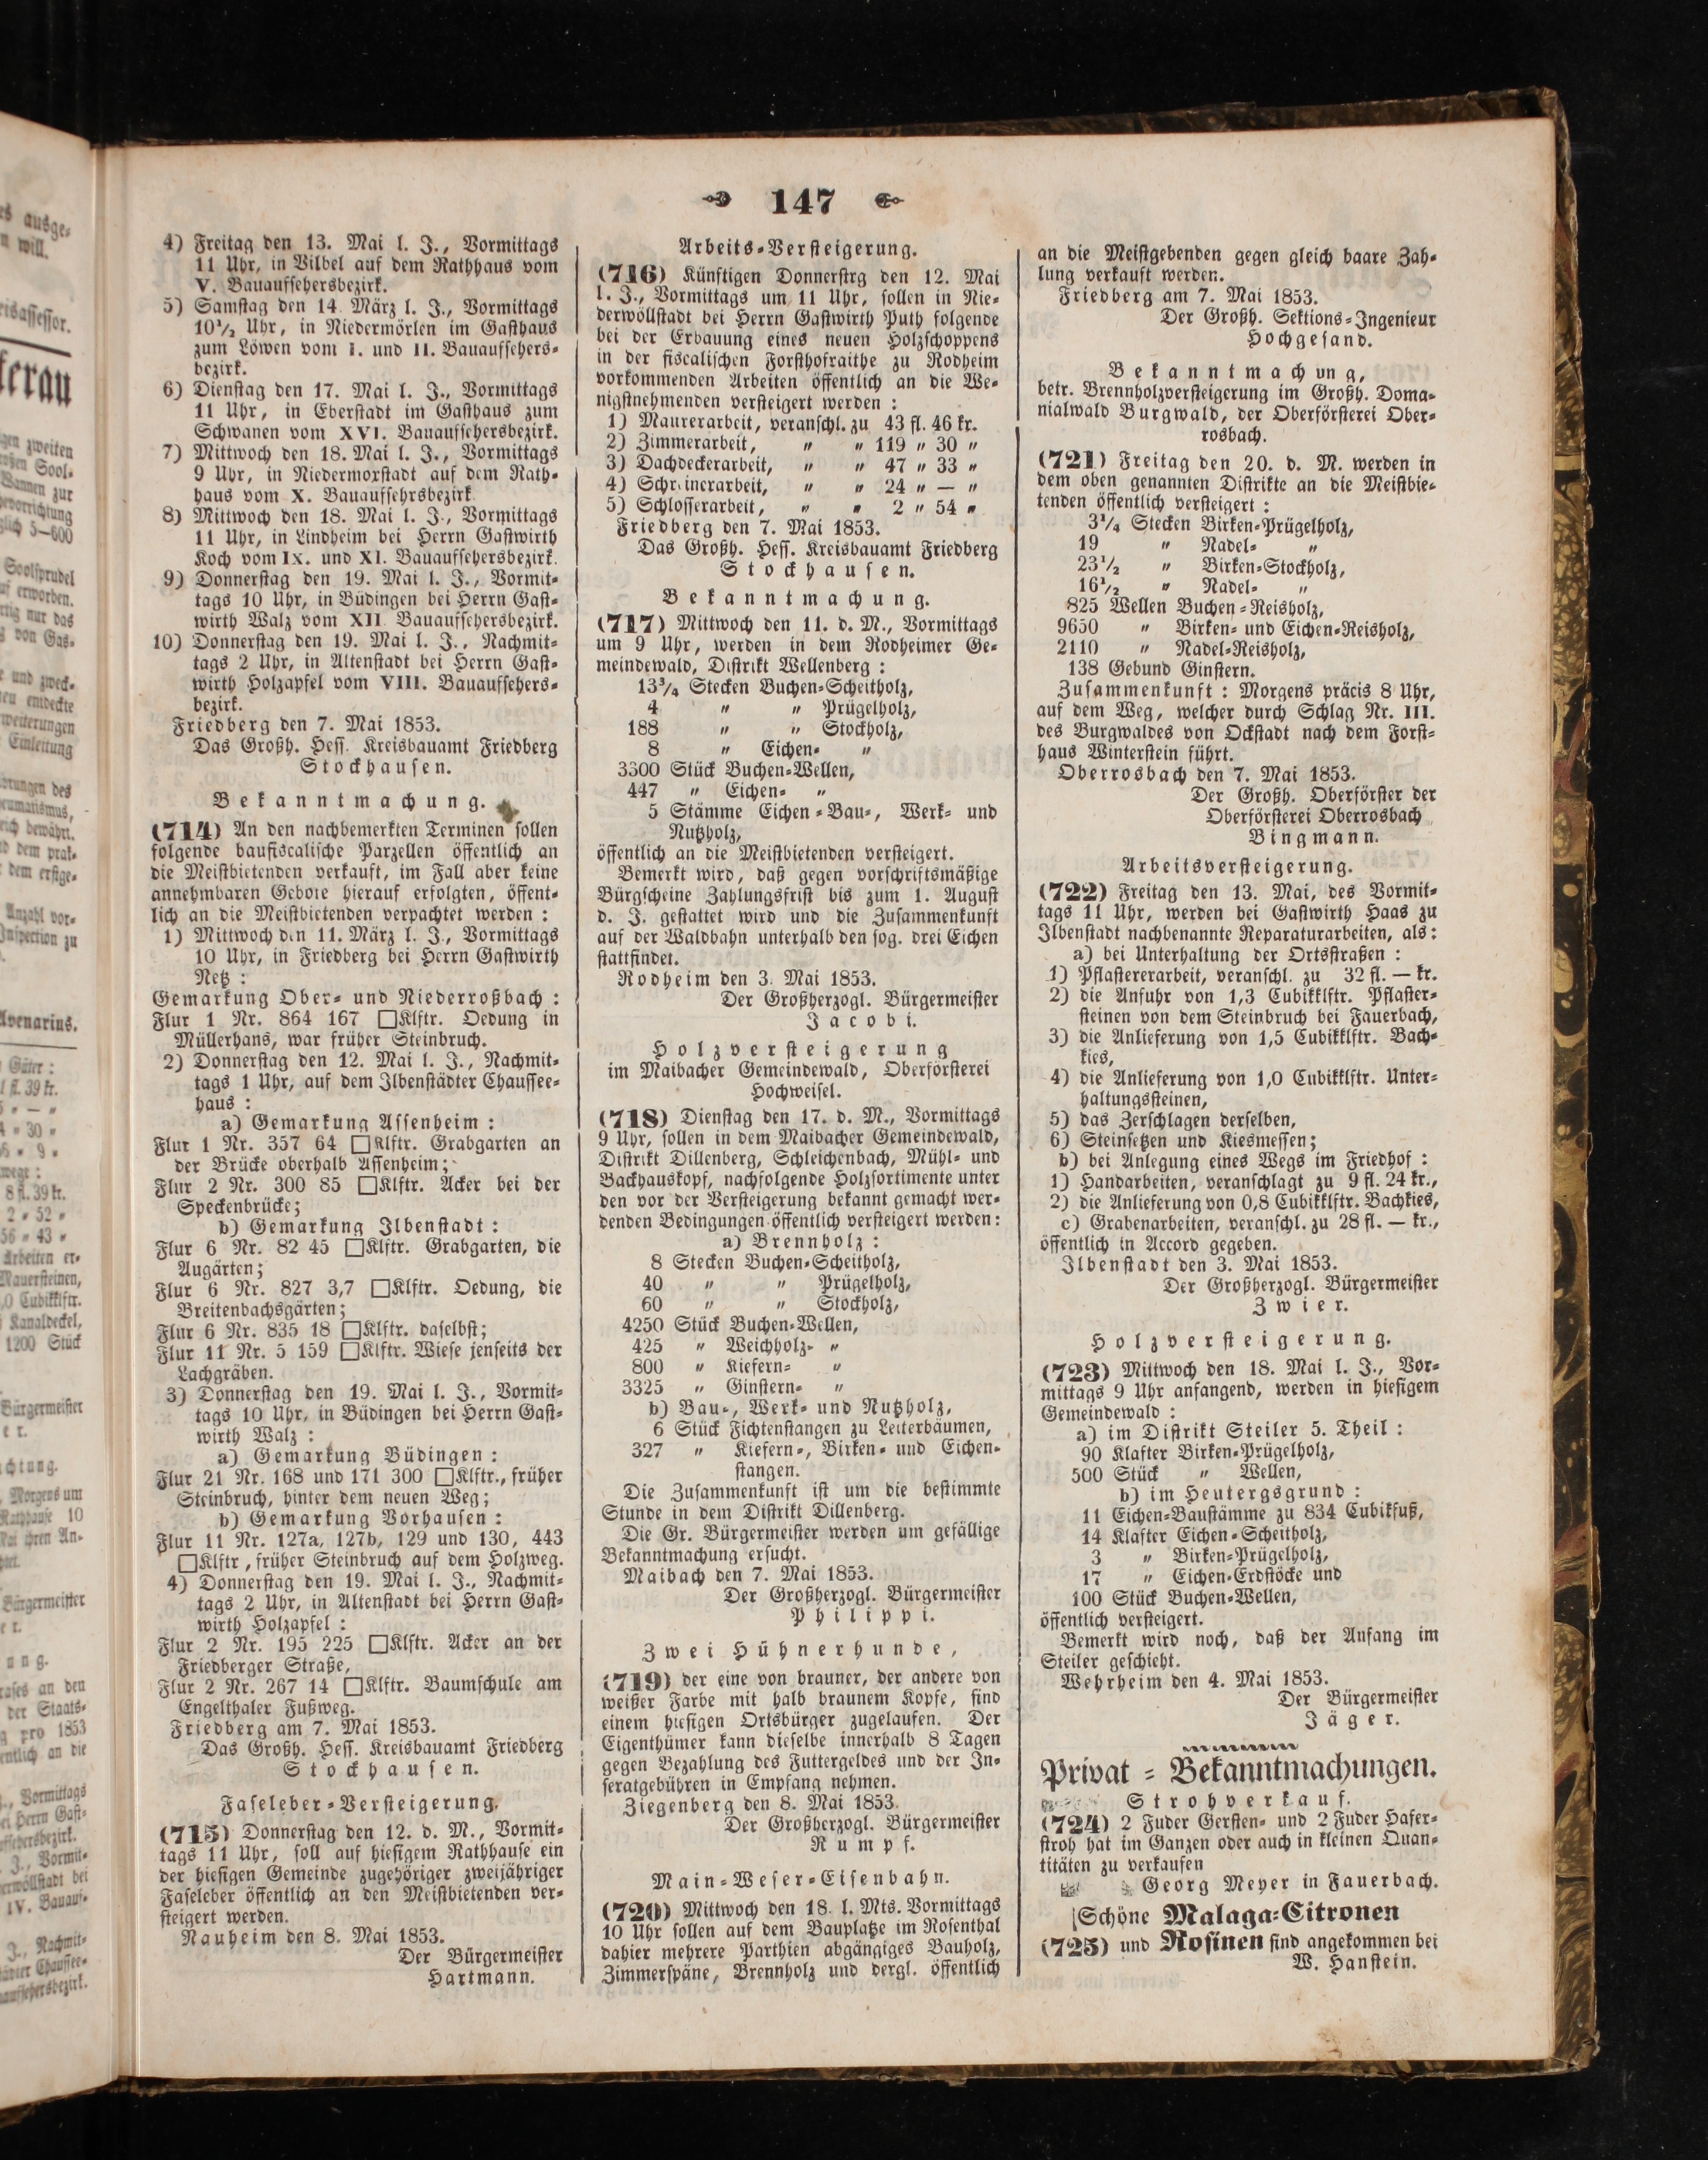 147
4) Freitag den 13. Mai l. J., Vormittags
11 Uhr, in Vilbel auf dem Rathhaus vom
V. Bauaufsehersbezirk.
5) Samstag den 14 März l. J., Vormittags
10½ Uhr, in Niedermörlen im Gasthaus
zum Löwen vom I. und II. Bauaufsehers-
bezirk.
6) Dienstag den 17. Mai l. J., Vormittags
11 Uhr, in Eberstadt im Gasthaus zum
Schwanen vom XVI. Bauaufsehersbezirk.
7) Mittwoch den 18. Mai l. J., Vormittags
9 Uhr, in Niedermorstadt auf dem Rath-
haus vom X. Bauaufsehrsbezirk
8) Mittwoch den 18. Mai l. J., Vormittags
11 Uhr, in Lindheim bei Herrn Gastwirth
Koch vom IX. und XI. Bauaufsehersbezirk.
9) Donnerstag den 19. Mai l. J., Vormit-
tags 10 Uhr, in Büdingen bei Herrn Gast-
wirth Walz vom XII Bauaufsehersbezirk.
10) Donnerstag den 19. Mai l. J., Nachmit-
tags 2 Uhr, in Altenstadt bei Herrn Gast-
wirth Holzapfel vom VIII. Bauaufsehers-
bezirk.
Friedberg den 7. Mai 1853.
Das Großh. Hess. Kreisbauamt Friedberg
Stockhausen.
Bekanntmachung.
(714) An den nachbemerkten Terminen sollen
folgende baufiscalische Parzellen öffentlich an
die Meistbietenden verkauft, im Fall aber keine
annehmbaren Gebote hierauf erfolgten, öffent-
lich an die Meistbietenden verpachtet werden :
1) Mittwoch den 11. März l. J., Vormittags
10 Uhr, in Friedberg bei Herrn Gastwirth
Netz :
Gemarkung Ober- und Niederroßbach :
Flur 1 Nr. 864 167 □Klftr. Oedung in
Müllerhans, war früher Steinbruch.
2) Donnerstag den 12. Mai l. J., Nachmit-
tags 1 Uhr, auf dem Ilbenstädter Chaussee-
haus :
a) Gemarkung Assenheim :
Flur 1 Nr. 357 64 □Klftr. Grabgarten an
der Brücke oberhalb Assenheim;
Flur 2 Nr. 300 85 □Klftr. Acker bei der
Speckenbrücke;
b) Gemarkung Ilbenstadt :
Flur 6 Nr. 82 45 □Klftr. Grabgarten, die
Augärten;
Flur 6 Nr. 827 3,7 □Klftr. Oedung, die
Breitenbachsgärten;
Flur 6 Nr. 835 18 □Klftr. daselbst;
Flur 11 Nr. 5 159 □Klftr. Wiese jenseits der
Lachgräben.
3) Donnerstag den 19. Mai l. J., Vormit-
tags 10 Uhr, in Büdingen bei Herrn Gast-
wirth Walz :
a) Gemarkung Büdingen :
Flur 21 Nr. 168 und 171 300 □Klftr., früher
Steinbruch, hinter dem neuen Weg;
b) Gemarkung Vorhausen :
Flur 11 Nr. 127a, 127b, 129 und 130, 443
□Klftr, früher Steinbruch auf dem Holzweg.
4) Donnerstag den 19. Mai l. J., Nachmit-
tags 2 Uhr, in Altenstadt bei Herrn Gast-
wirth Holzapfel :
Flur 2 Nr. 195 225 □Klftr. Acker an der
Friedberger Straße,
Flur 2 Nr. 267 14 □Klftr. Baumschule am
Engelthaler Fußweg.
Friedberg am 7. Mai 1853.
Das Großh. Hess. Kreisbauamt Friedberg
Stockhausen.
Faseleber-Versteigerung.
(715) Donnerstag den 12. d. M., Vormit-
tags 11 Uhr, soll auf hiesigem Rathhause ein
der hiesigen Gemeinde zugehöriger zweijähriger
Faseleber öffentlich an den Meistbietenden ver-
steigert werden.
Nauheim den 8. Mai 1853.
Der Bürgermeister
Hartmann.
Arbeits-Versteigerung.
(716) Künftigen Donnerstrg den 12. Mai
l. J., Vormittags um 11 Uhr, sollen in Nie-
derwöllstadt bei Herrn Gastwirth Puth folgende
bei der Erbauung eines neuen Holzschoppens
in der fiscalischen Forsthofraithe zu Rodheim
vorkommenden Arbeiten öffentlich an die We-
nigstnehmenden versteigert werden :
1) Maurerarbeit, veranschl. zu 43 fl. 46 kr.
2) Zimmerarbeit, " " 119 " 30 "
3) Dachdeckerarbeit, " " 47 " 33 "
4) Schreinerarbeit, " " 24 " — "
5) Schlosserarbeit, " " 2 " 54 "
Friedberg den 7. Mai 1853.
Das Großh. Hess. Kreisbauamt Friedberg
Stockhausen.
Bekanntmachung.
(717) Mittwoch den 11. d. M., Vormittags
um 9 Uhr, werden in dem Rodheimer Ge-
meindewald, Distrikt Wellenberg :
13¾ Stecken Buchen-Scheitholz,
4 " " Prügelholz,
188 " " Stockholz,
8 " Eichen- "
3300 Stück Buchen-Wellen,
447 " Eichen- "
5 Stämme Eichen-Bau-, Werk- und
Nutzholz,
öffentlich an die Meistbietenden versteigert.
Bemerkt wird, daß gegen vorschriftsmäßige
Bürgscheine Zahlungsfrist bis zum 1. August
d. J. gestattet wird und die Zusammenkunft
auf der Waldbahn unterhalb den sog. drei Eichen
stattfindet.
Rodheim den 3. Mai 1853.
Der Großherzogl. Bürgermeister
Jacobi.
Holzversteigerung
im Maibacher Gemeindewald, Oberförsterei
Hochweisel.
(718) Dienstag den 17. d. M., Vormittags
9 Uhr, sollen in dem Maibacher Gemeindewald,
Distrikt Dillenberg, Schleichenbach, Mühl- und
Backhauskopf, nachfolgende Holzsortimente unter
den vor der Versteigerung bekannt gemacht wer-
denden Bedingungen öffentlich versteigert werden:
a) Brennholz :
8 Stecken Buchen-Scheitholz,
40 " " Prügelholz,
60 " " Stockholz,
4250 Stück Buchen-Wellen,
425 " Weichholz- "
800 " Kiefern- "
3325 " Ginstern- "
b) Bau-, Werk- und Nutzholz,
6 Stück Fichtenstangen zu Leiterbäumen,
327 " Kiefern-, Birken- und Eichen-
stangen.
Die Zusammenkunft ist um die bestimmte
Stunde in dem Distrikt Dillenberg.
Die Gr. Bürgermeister werden um gefällige
Bekanntmachung ersucht.
Maibach den 7. Mai 1853.
Der Großherzogl. Bürgermeister
Philippi.
Zwei Hühnerhunde,
(719) der eine von brauner, der andere von
weißer Farbe mit halb braunem Kopfe, sind
einem hiesigen Ortsbürger zugelaufen. Der
Eigenthümer kann dieselbe innerhalb 8 Tagen
gegen Bezahlung des Futtergeldes und der In-
seratgebühren in Empfang nehmen.
Ziegenberg den 8. Mai 1853.
Der Großherzogl. Bürgermeister
Rumpf.
Main-Weser-Eisenbahn.
(720) Mittwoch den 18. l. Mts. Vormittags
10 Uhr sollen auf dem Bauplatze im Rosenthal
dahier mehrere Parthien abgängiges Bauholz,
Zimmerspäne, Brennholz und dergl. öffentlich
an die Meistgebenden gegen gleich baare Zah-
lung verkauft werden.
Friedberg am 7. Mai 1853.
Der Großh. Sektions-Ingenieur
Hochgesand.
Bekanntmachung,
betr. Brennholzversteigerung im Großh. Doma-
nialwald Burgwald, der Oberförsterei Ober-
rosbach.
(721) Freitag den 20. d. M. werden in
dem oben genannten Distrikte an die Meistbie-
tenden öffentlich versteigert :
3¼ Stecken Birken-Prügelholz,
19 " Nadel- "
23½ " Birken-Stockholz,
16½ " Nadel- "
825 Wellen Buchen-Reisholz,
9650 " Birken- und Eichen-Reisholz,
2110 " Nadel-Reisholz,
138 Gebund Ginstern.
Zusammenkunft : Morgens präcis 8 Uhr,
auf dem Weg, welcher durch Schlag Nr. III.
des Burgwaldes von Ockstadt nach dem Forst-
haus Winterstein führt.
Oberrosbach den 7. Mai 1853.
Der Großh. Oberförster der
Oberförsterei Oberrosbach
Bingmann.
Arbeitsversteigerung.
(722) Freitag den 13. Mai, des Vormit-
tags 11 Uhr, werden bei Gastwirth Haas zu
Ilbenstadt nachbenannte Reparaturarbeiten, als:
a) bei Unterhaltung der Ortsstraßen :
1) Pflastererarbeit, veranschl. zu 32 fl. — kr.
2) die Anfuhr von 1,3 Cubikklftr. Pflaster-
steinen von dem Steinbruch bei Fauerbach,
3) die Anlieferung von 1,5 Cubikklftr. Bach-
kies,
4) die Anlieferung von 1,0 Cubikklftr. Unter-
haltungssteinen,
5) das Zerschlagen derselben,
6) Steinsetzen und Kiesmessen;
b) bei Anlegung eines Wegs im Friedhof :
1) Handarbeiten, veranschlagt zu 9 fl. 24 kr.,
2) die Anlieferung von 0,8 Cubikklftr. Bachkies,
c) Grabenarbeiten, veranschl. zu 28 fl. — kr.,
öffentlich in Accord gegeben.
Ilbenstadt den 3. Mai 1853.
Der Großherzogl. Bürgermeister
Zwier.
Holzversteigerung.
(723) Mittwoch den 18. Mai l. J., Vor-
mittags 9 Uhr anfangend, werden in hiesigem
Gemeindewald :
a) im Distrikt Steiler 5. Theil :
90 Klafter Birken-Prügelholz,
500 Stück " Wellen,
b) im Heutergsgrund :
11 Eichen-Baustämme zu 834 Cubikfuß,
14 Klafter Eichen-Scheitholz,
3 " Birken-Prügelholz,
17 " Eichen-Erdstöcke und
100 Stück Buchen-Wellen,
öffentlich versteigert.
Bemerkt wird noch, daß der Anfang im
Steiler geschieht.
Wehrheim den 4. Mai 1853.
Der Bürgermeister
Jäger.
Privat-Bekanntmachungen.
Strohverkauf.
(724) 2 Fuder Gersten- und 2 Fuder Hafer-
stroh hat im Ganzen oder auch in kleinen Quan-
titäten zu verkaufen
Georg Meyer in Fauerbach.
Schöne Malaga-Citronen
(725) und Rosinen sind angekommen bei
W. Hanstein.